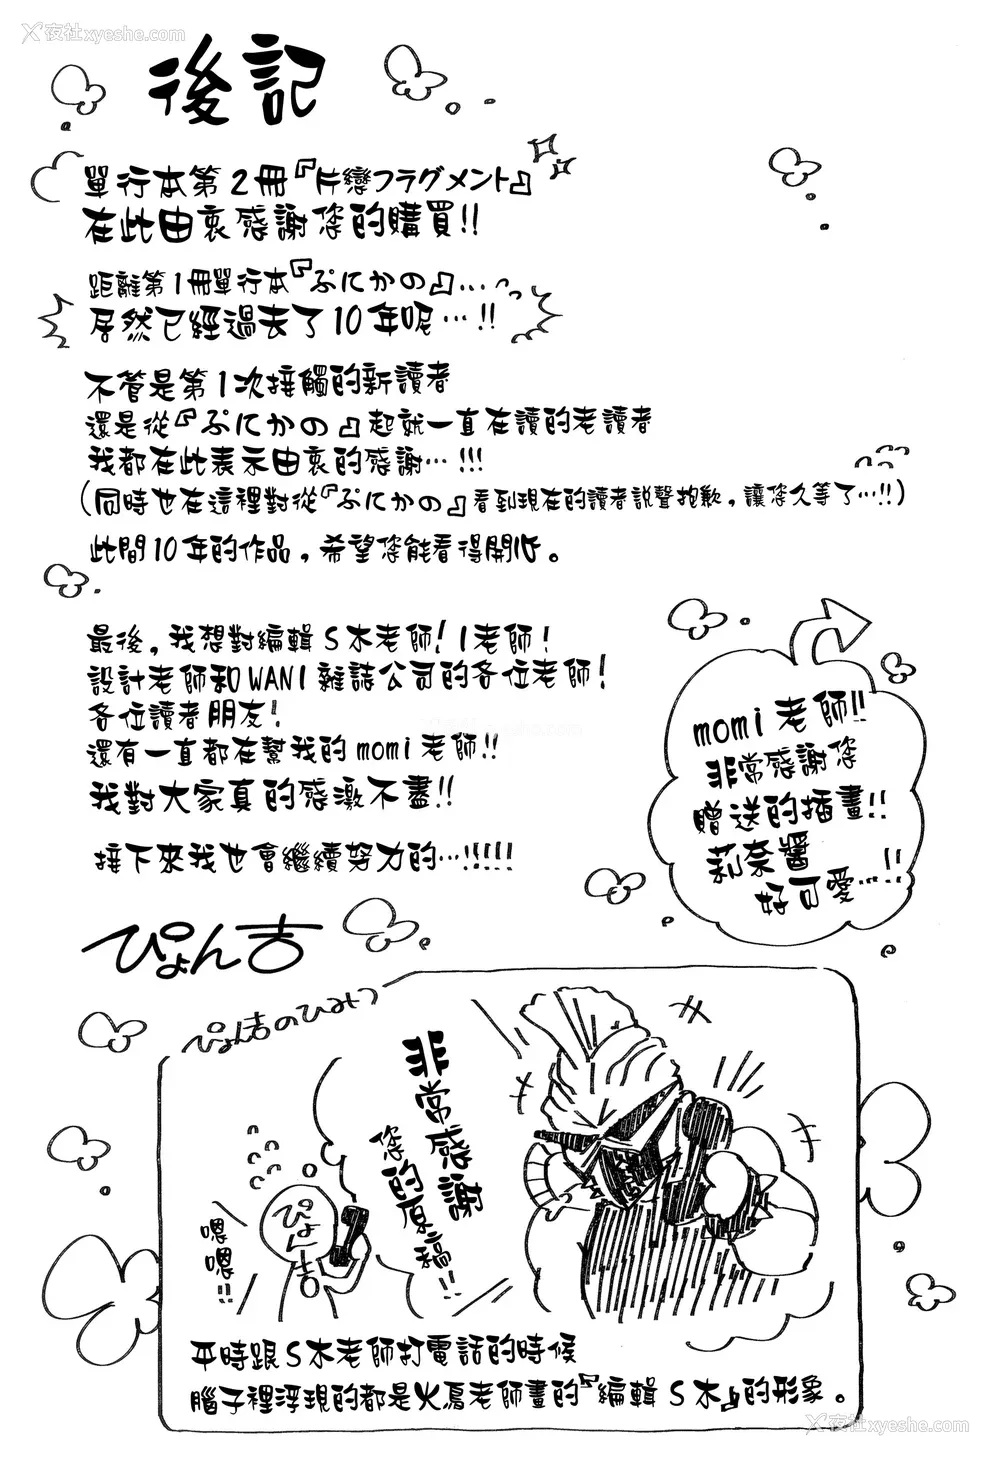 夜社xyeshe.com
後記
單行本第2冊『片戀フラグメント』
在此由衷感謝您的購買!!
距離第1冊單行本『ぷにかの』…
居然已經過去了10年呢…!!
不管是第1次接觸的新讀者
還是從『ぷにかの』起就一直在讀的老讀者
我都在此表示由衷的感謝…!!!
(同時也在這裡對從『ぷにかの』看到現在的讀者說聲抱歉，讓您久等了…!!)
此間10年的作品，希望您能看得開心。
最後，我想對編輯S木老師!I老師!
設計老師和WANI雜誌公司的各位老師!
各位讀者朋友!
還有一直都在幫我的momi老師!!
我對大家真的感激不盡!!
接下來我也會繼續努力的…!!!!!
momi老師!!
非常感謝您
贈送的插畫!!
莉奈醬
好可愛…!!
ぴょん吉
ぴょん吉のひみつ
非常感謝
您的原稿!!
ぴょん吉
嗯
嗯嗯!!
平時跟S木老師打電話的時候
腦子裡浮現的都是火鳥老師畫的『編輯S木』的形象。
夜社xyeshe.com